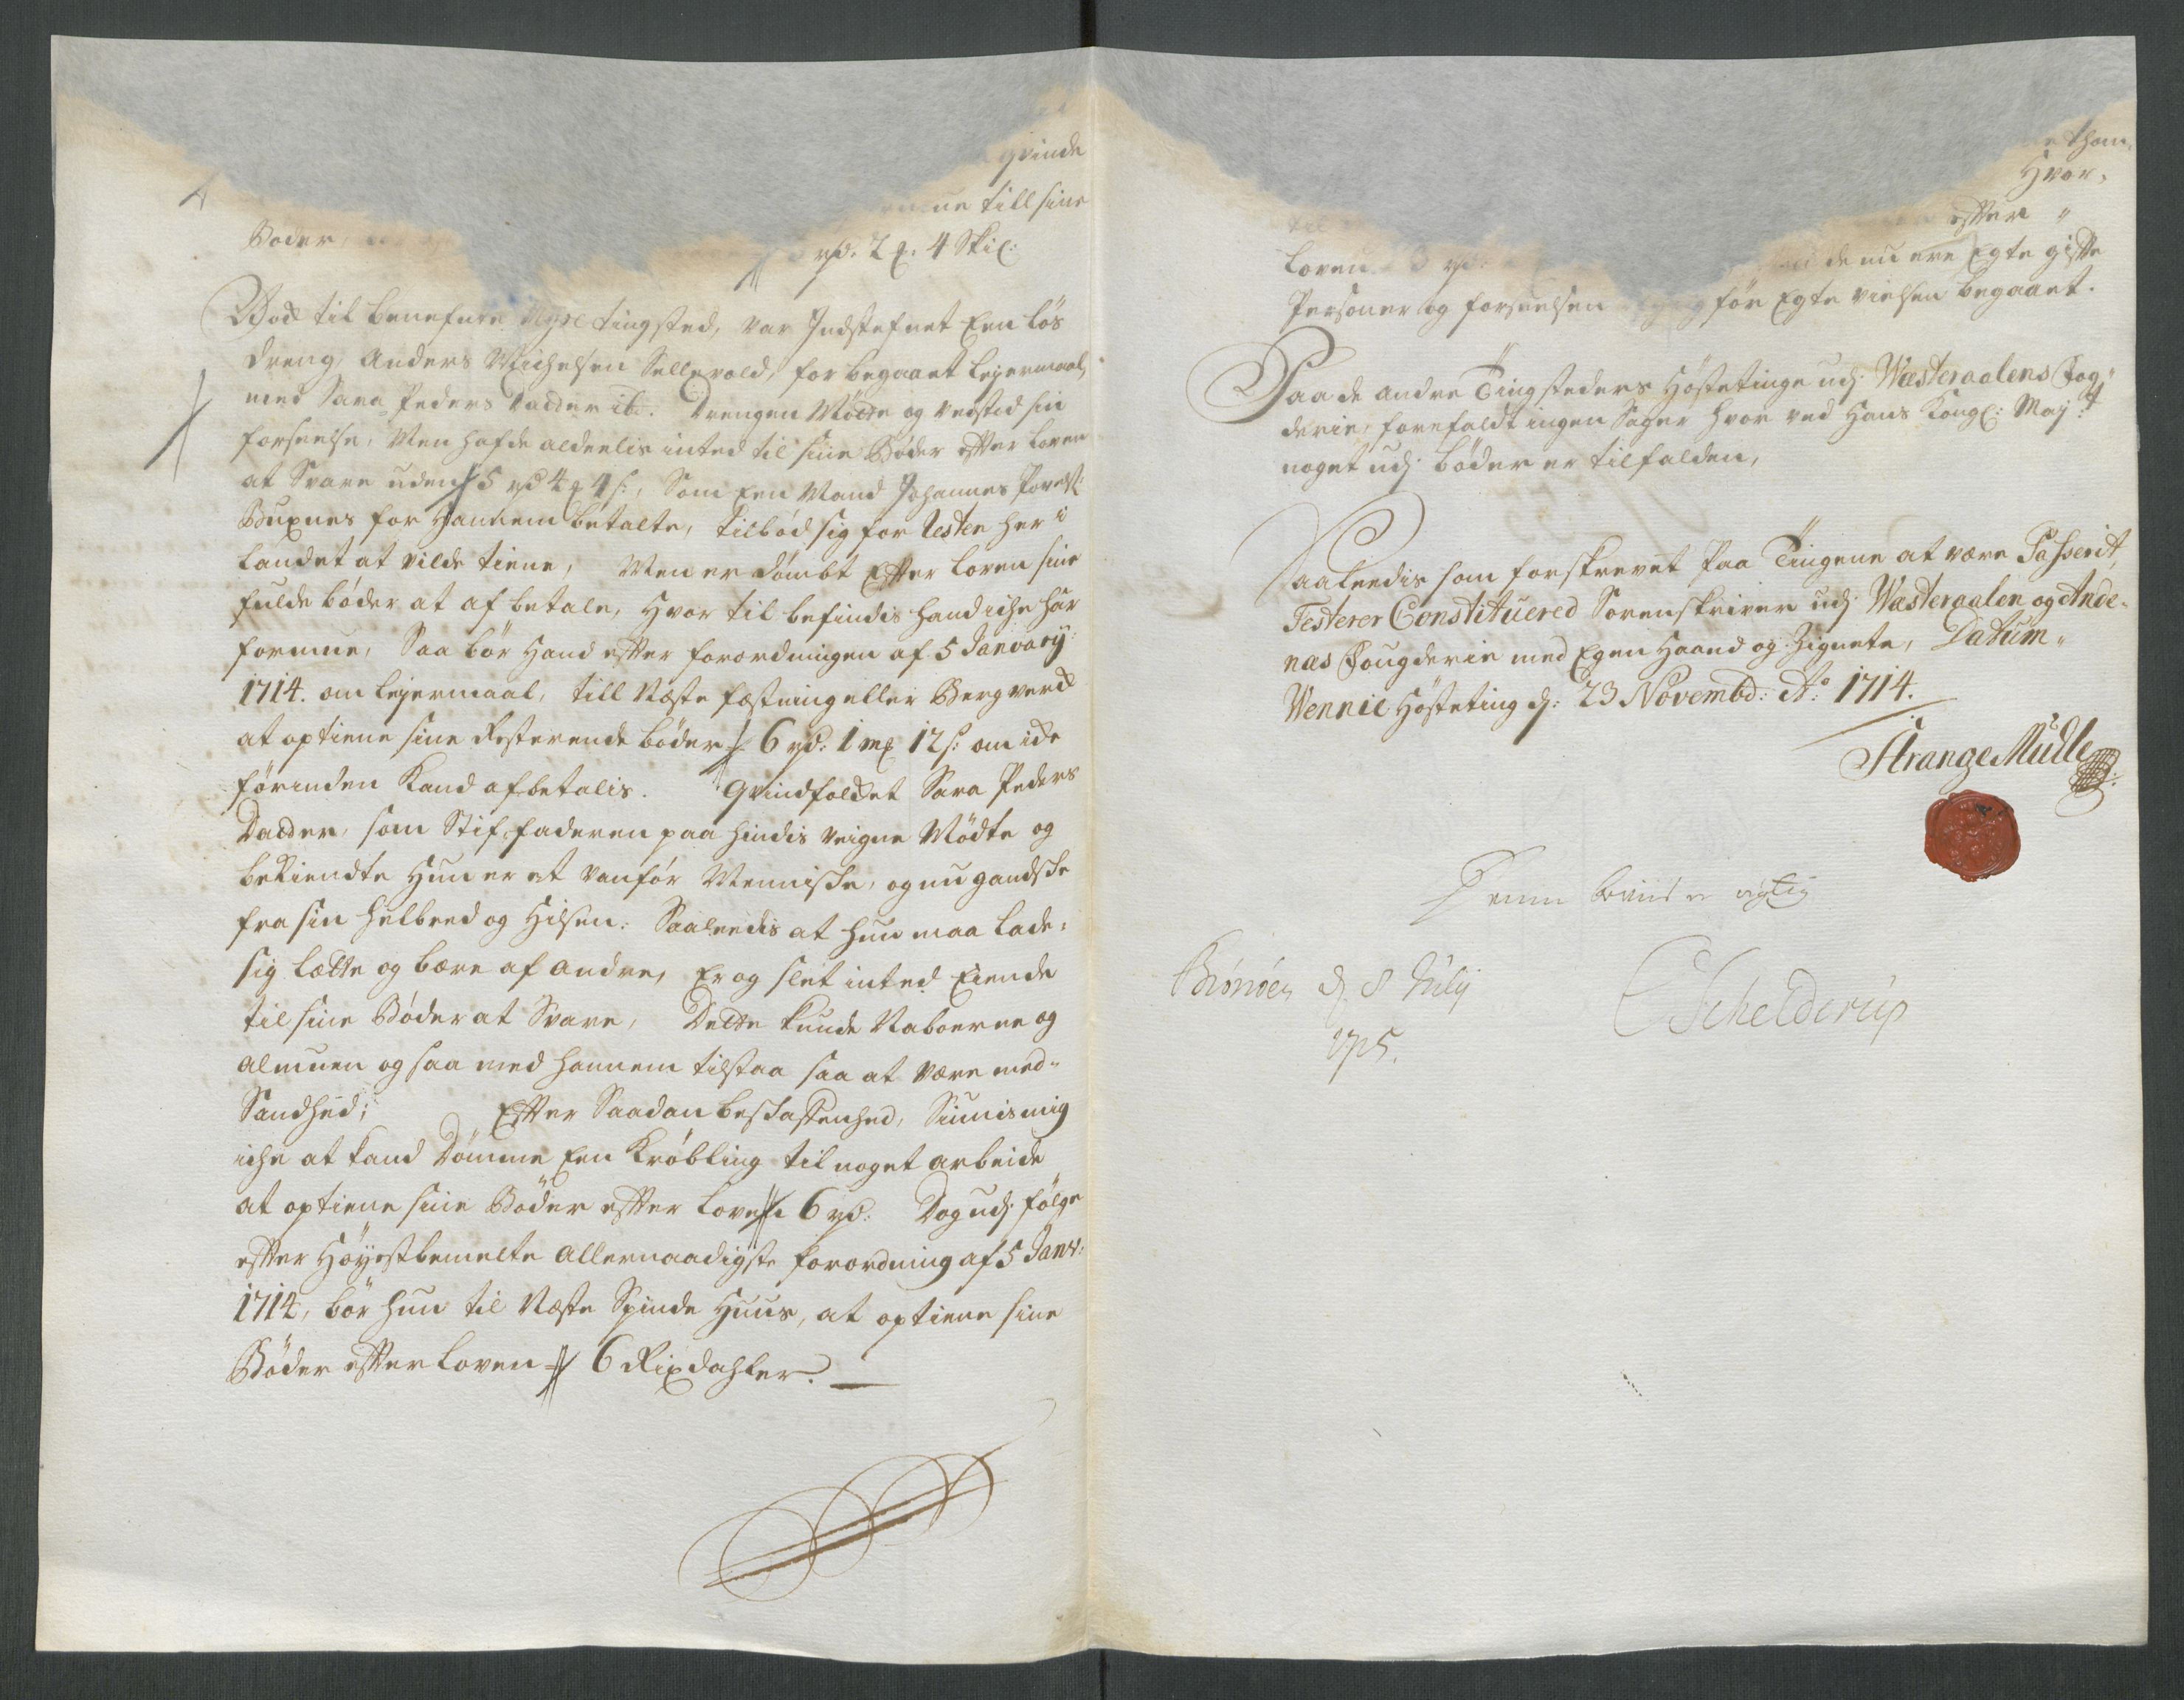 qvinde
till sine
Böder
rd. 2 ȝ. 4 Skil:
Ved til benefnte Myre tingsted, var Indstefnet Een løs
dreng Anders Michelsen Sellevold, for begaaet Lejermaal,
med Sara Peders datter ib. Drengen Mödte og vedstod sin
forseelse, Men hafde aldeelis inted til sine Böder effter loven
at Svare uden 5 rd 4 ȝ 4 s:, Som Een Mand Johannes Povels:
Buxnes for Hannem betalte, tilbød sig for Resten her i
Landet at vilde tiene, Men er dømbt Effter Loven sine
fulde bøder at af betale, Hvor til befindis hand iche har
formue, Saa bör Hand effter forordningen af 5 Janvarij
1714. om Lejermaal, till Næste fæstning eller Bergverck
at optiene sine Resterende bøder 6 rd: 1 mȝ 12 s: om ide
förinden Kand afbetalis. Qvindfolcket Sara Peders
Datter, som Stif-faderen paa hindis veigne Mödte og
bekiendte Hun er et vanför Menniske, og nu gandske
fra sin helbred og Hilsen: Saaleedis at hun maa lade
sig lætte og bære af andre, Er og slet inted Eiende
til sine Böder at Svare, Dette kunde Naboerne og
almuen og saa med hannem tilstaa saa at være med
Sandhed; Effter Saadan beskaffenhed, Siunis mig
iche at kand Dömme Een Krøbling til noget arbeide
at optiene sine Böder effter loven 6 rd: Dog udj fölge
effter Höyestbemelte allernaadigste forordning af 5 Janv:
1714, bör hun til Næste Spinde Huus, at optiene sine
Böder effter loven 6 Rixdahler.
Hvor,
til
effter
Loven rd.
de nu ere Egte giffte
Personer og forseelsen för Egte vielsen begaaet.
Paa de andre Tingsteders Höstetinge udj Wæsteraalens Fog
derie, forefaldt ingen Sager hvor ved Hans Kongl: Maj:t
noget udj böder er tilfalden,
Saaleedis som forskrevet paa Tingene at være Passerit,
Testerer Constituered Sorenskriver udj Wæsteraalen og Ande
næs Fougderie med Egen Haand og Zignete, Datum
Wennie Hösteting dj: 23 Novembd: Ao: 1714.
Strange Müller
Denne beviis er rigtig
Brönöen dj 8 Julij
1715.
Schelderup